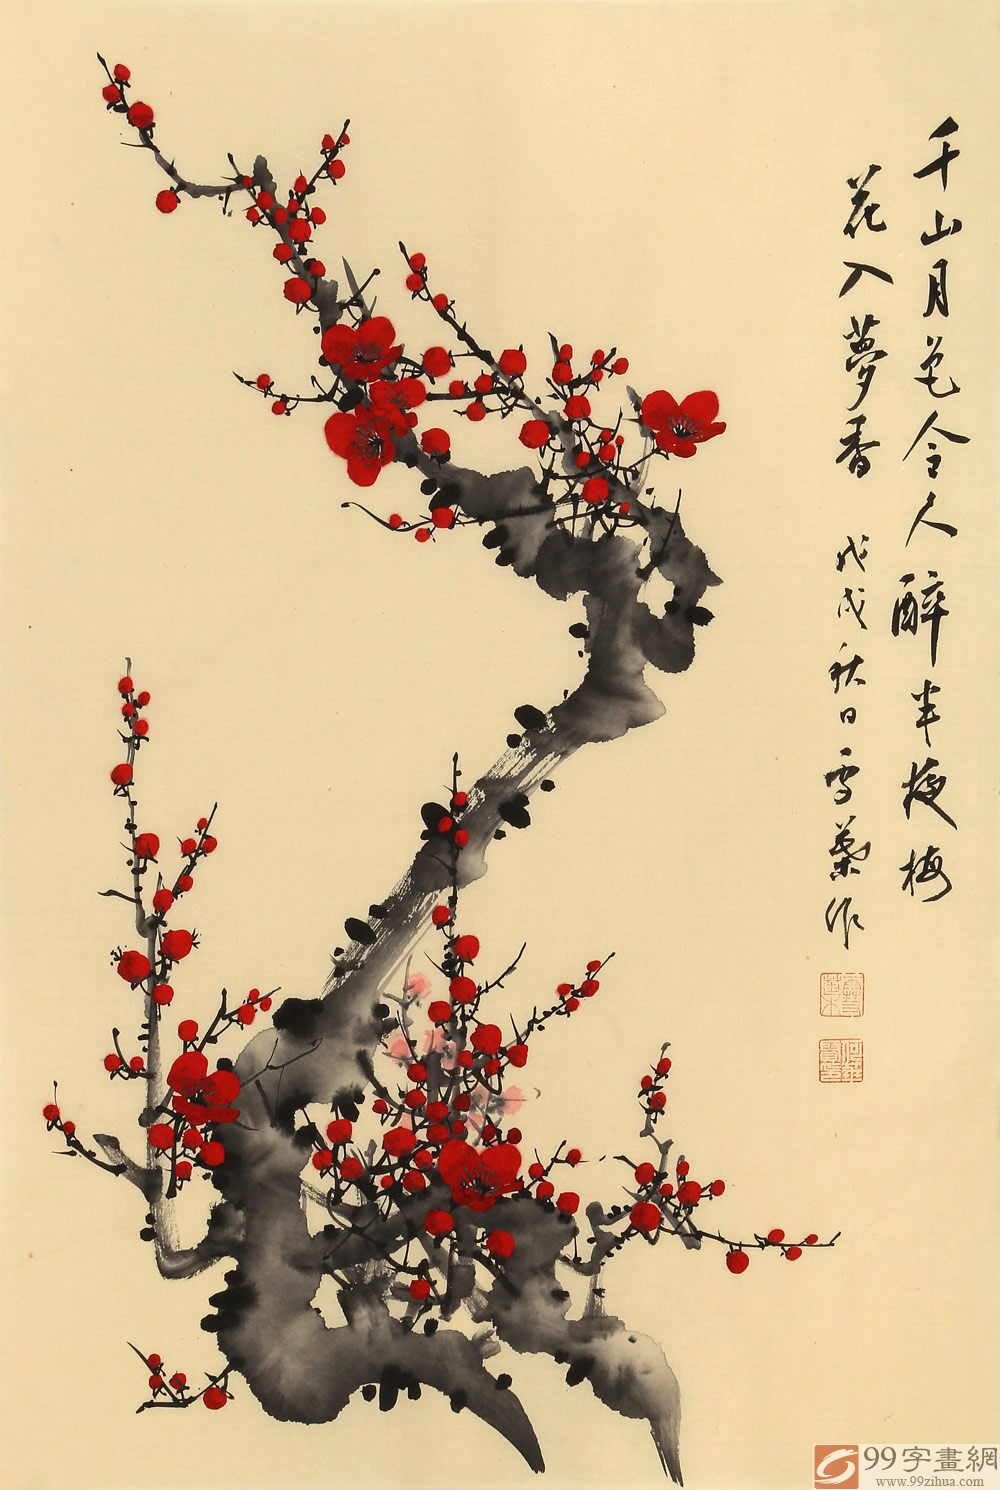 千山月色令人醉半夜梅
花入夢香 戊戌秋日雪葉作
99字畫網
www.99zihua.com